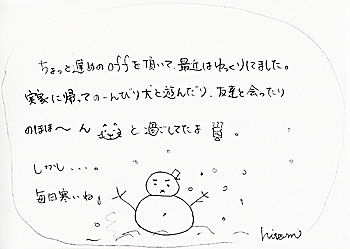 ちょっと遅めのoffを頂いて、最近はゆっくりしてました。
実家に帰ってのーんびり犬と遊んだり、友達と会ったり
のほほ〜ん と過ごしてたよ 。
しかし、、、。
毎日寒いね。
hitomi